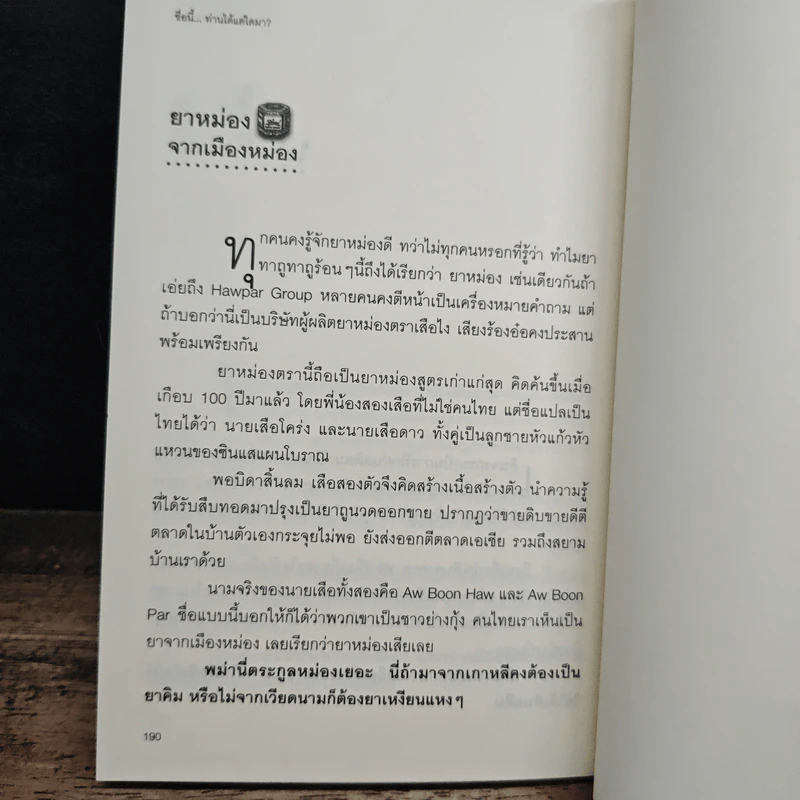 ชื่อนี้... ท่านได้แต่ใดมา?
ยาหม่อง
จากเมืองหม่อง
ทุกคนคงรู้จักยาหม่องดี ทว่าไม่ทุกคนหรอกที่รู้ว่า ทำไมยา
ทาถูทาถูร้อนๆนี้ถึงได้เรียกว่า ยาหม่อง เช่นเดียวกันถ้า
เอ่ยถึง Hawpar Group หลายคนคงตีหน้าเป็นเครื่องหมายคำถาม แต่
ถ้าบอกว่านี่เป็นบริษัทผู้ผลิตยาหม่องตราเสือไง เสียงร้องอ๋อคงประสาน
พร้อมเพรียงกัน
ยาหม่องตรานี้ถือเป็นยาหม่องสูตรเก่าแก่สุด คิดค้นขึ้นเมื่อ
เกือบ 100 ปีมาแล้ว โดยพี่น้องสองเสือที่ไม่ใช่คนไทย แต่ชื่อแปลเป็น
ไทยได้ว่า นายเสือโคร่ง และนายเสือดาว ทั้งคู่เป็นลูกชายหัวแก้วหัว
แหวนของซินแสแผนโบราณ
พอบิดาสิ้นลม เสือสองตัวจึงคิดสร้างเนื้อสร้างตัว นำความรู้
ที่ได้รับสืบทอดมาปรุงเป็นยาถูนวดออกขาย ปรากฏว่าขายดิบขายดีตี
ตลาดในบ้านตัวเองกระจุยไม่พอ ยังส่งออกตีตลาดเอเชีย รวมถึงสยาม
บ้านเราด้วย
นามจริงของนายเสือทั้งสองคือ Aw Boon Haw และ Aw Boon
Par ชื่อแบบนี้บอกให้ก็ได้ว่าพวกเขาเป็นชาวย่างกุ้ง คนไทยเราเห็นเป็น
ยาจากเมืองหม่อง เลยเรียกว่ายาหม่องเสียเลย
พม่านี่ตระกูลหม่องเยอะ นี่ถ้ามาจากเกาหลีคงต้องเป็น
ยาคิม หรือไม่จากเวียดนามก็ต้องยาเหงียนแหงๆ
190